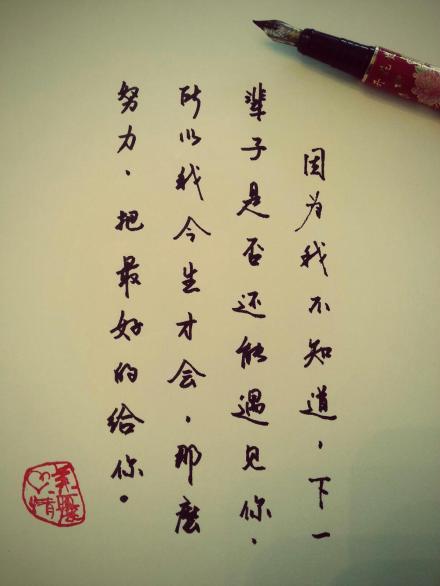 因为我不知道，下一
辈子是否还能遇见你，
所以我今生才会，那麽
努力，把最好的给你。